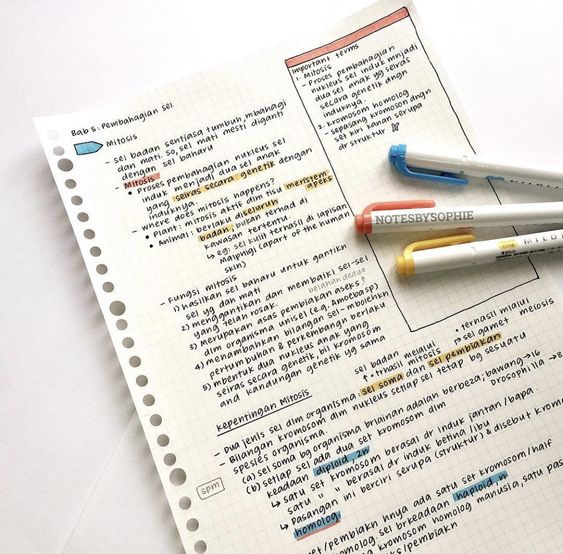 Bab 5: Pembahagian sel
Mitosis
- sel badan sentiasa tumbuh, mbahagi
dan mati. so, sel mati mesti diganti
dengan sel baharu
Mitosis
• Proses pembahagian nukleus sel
induk menjadi dua sel anak
yang seiras secara genetik dengan
induknya.
- where does mitosis happens?
• Plant: mitosis aktif dlm tisu meristem
apeks
• Animal: berlaku di seluruh
badan, bukan terhad di
kawasan tertentu.
↳ eg: sel kulit terhasil di lapisan
Malpighi (apart of the human
skin)
- Fungsi mitosis
1) hasilkan sel baharu untuk gantikn
sel yg dah mati
2) menggantikan dan membaiki sel-sel
yang telah rosak.
belahan dedua
3) Merupakan asas pembiakan aseks
dlm organisma unisel (e.g; Amoeba sp)
4) menambahkan bilangan sel → mbolehkn
pertumbuhan & perkembangn berlaku
5) mbentuk dua nukleus anak yang
seiras secara genetik, bil kromosom
and kandungan genetik yg sama
Kepentingan Mitosis
sel badan melalui
• trhasil mitosis
• terhasil mlalui
sel gamet meiosis
- Dua jenis sel dlm organisma: sel soma dan sel pembiakan
- Bilangan kromosom dlm nukleus setiap sel tetap bg sesuatu
spesies organisma.
(a) sel soma bg organisma brlainan adalah berbeza; bawang → 16
Drosophila → 8
(b) setiap sel ada dua set kromosom dlm
keadaan diploid, 2n
↳ satu set kromosom berasal dr induk jantan / bapa
satu " " berasal dr induk betina / ibu
↳ Pasangan ini berciri serupa (struktur) & disebut krom
homolog
spm
set/pembiakn hnya ada satu set kromosom/half
sel brkeadaan haploid, n
kromosom homolog manusia, satu pas
/pembiakn
Important terms
1. Mitosis
- Proses pembahagian
nukleus sel induk mnjadi
dua sel anak yg seiras
secara genetik dngn
induknya.
2. kromosom homolog
- sepasang kromosom dngn
set kiri kanan serupa
dr struktur
NOTESBYSOPHIE
MILD